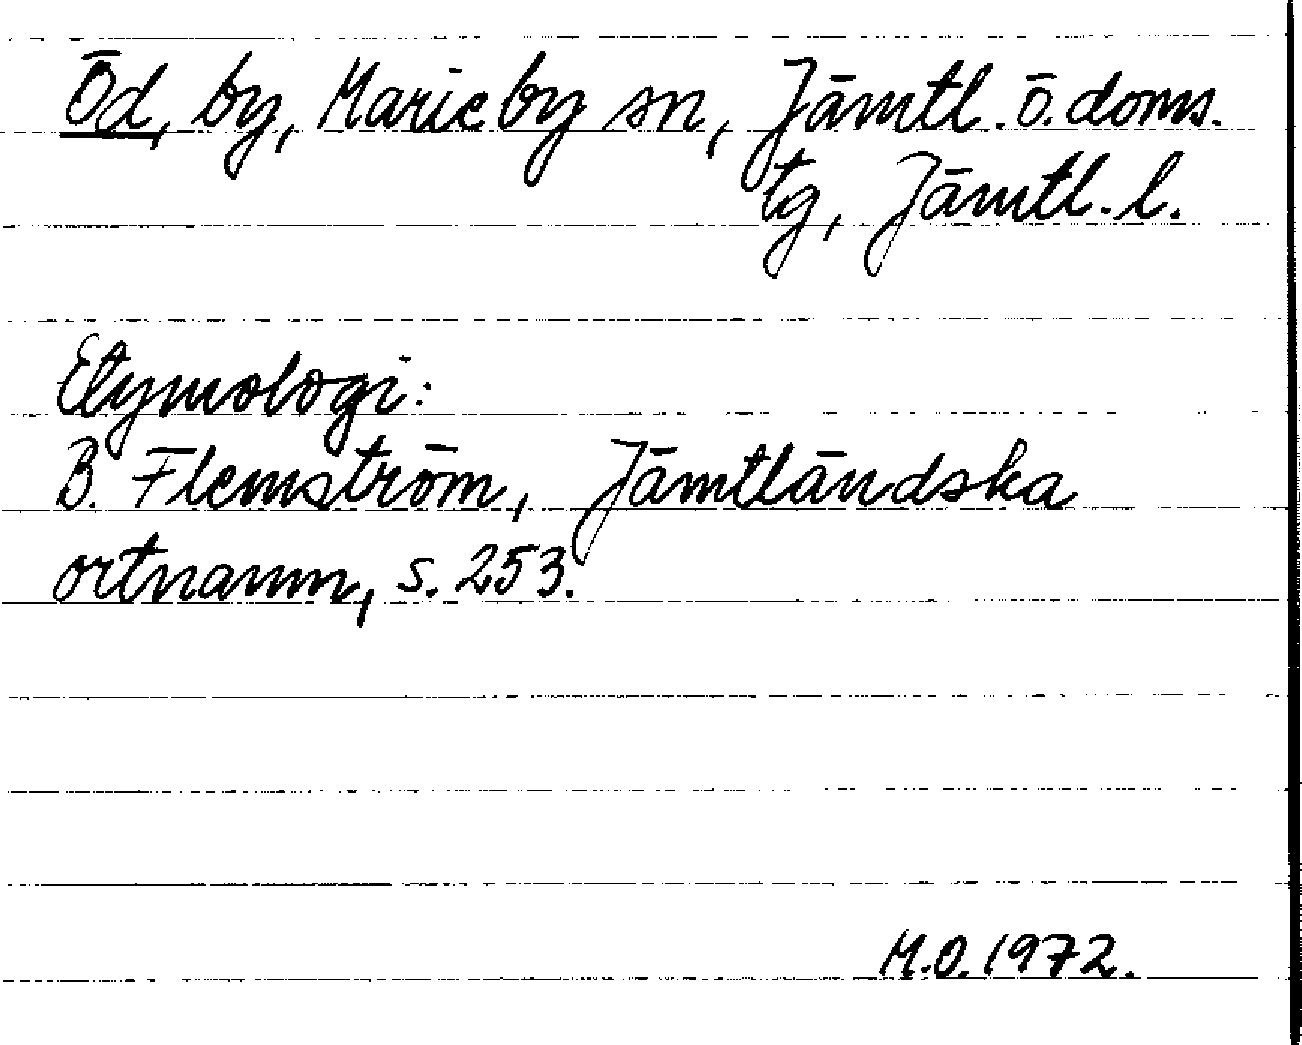 Öd, by, Marieby sn, Jämtl. ö. doms.
tg, Jämtl. l.
Etymologi:
B. Flemström, Jämtländska
ortnamn, s. 253.
M.O. 1972.